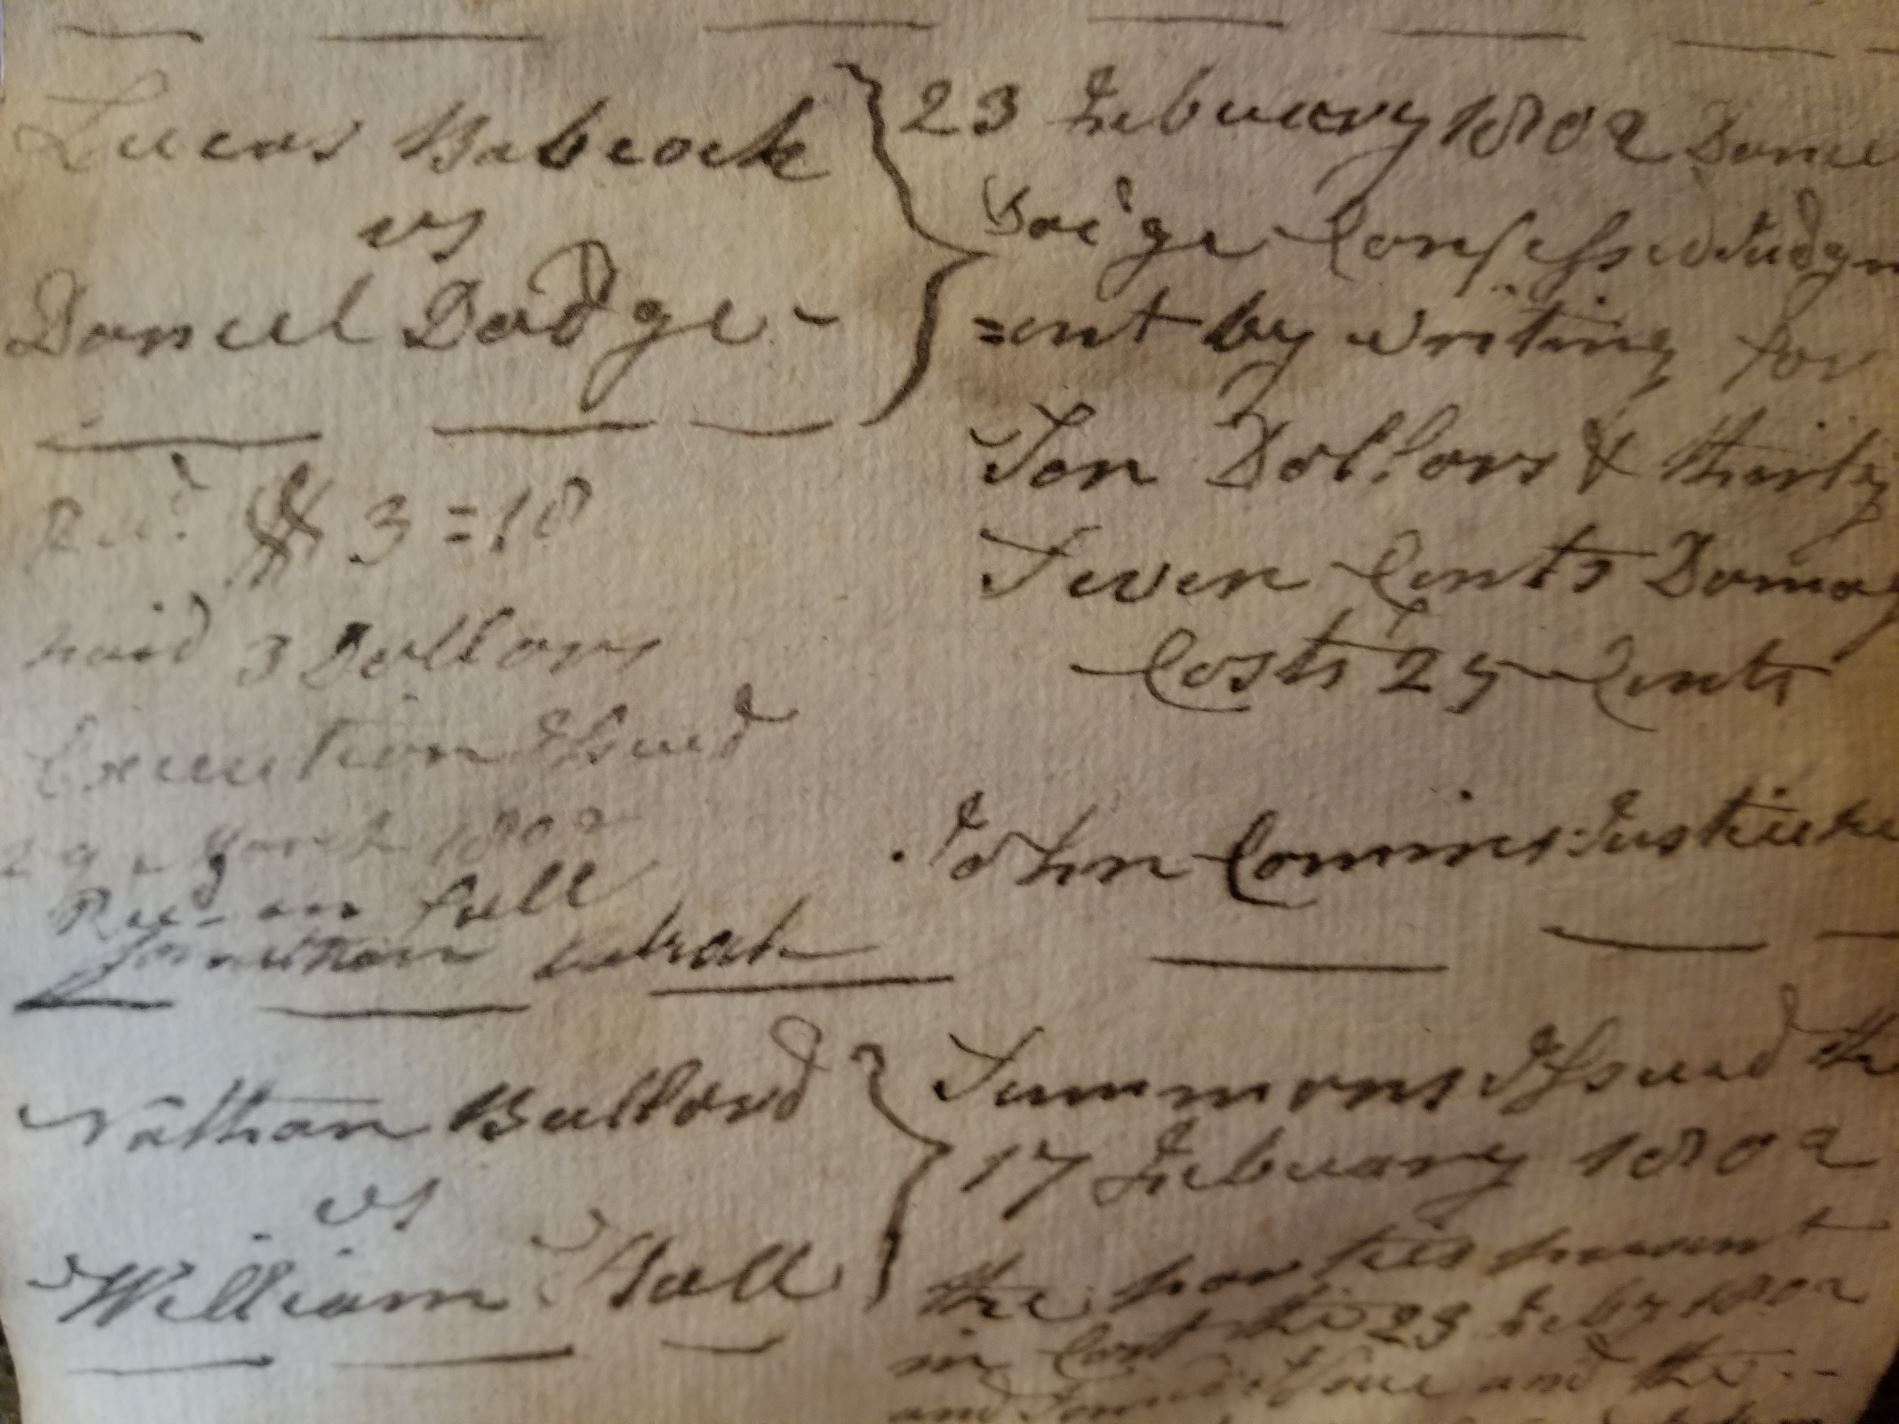 Lucas Babcock
vs
Daniel Dodge -
23 February 1802 Daniel
Dodge Confessed Judgm
=ent by writing for
Ten Dollars & thirty
Seven Cents Damag
Costs 25 Cents
John Comins Justice
Recd. $ 3=18
paid 3 Dollars
Execution Issued
29 March 1802
Recd in full
Jonathan
Nathan Bullard
vs
William Bull
Summons Issued the
17 February 1802
the parties present
in Cort the 23 Feby 1802
and the